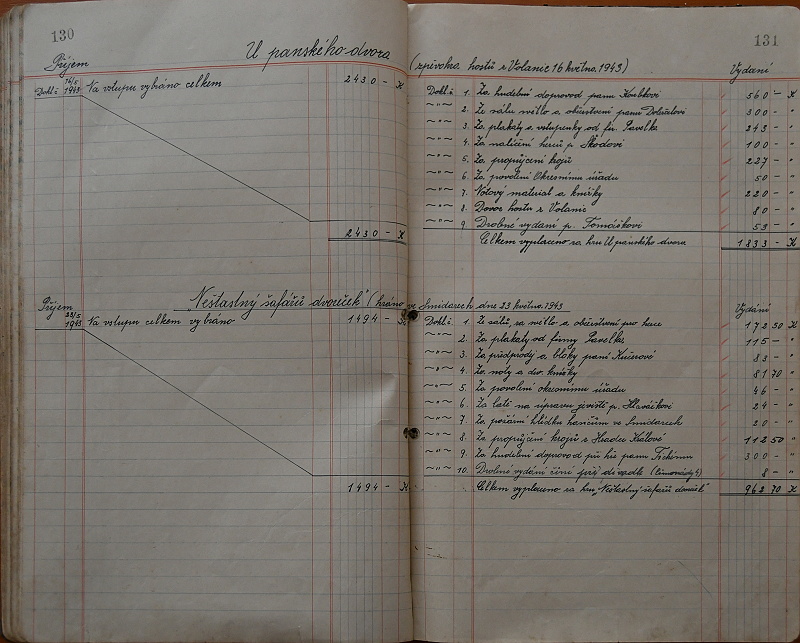 130
U panského dvora
Příjem
Dokl. č. 16/5 1943 Na vstupu vybráno celkem 2430 - K
2430 - K
"Nešťastný šafářův dvoreček" (hráno ve Smidarech dne 23 května 1943
Příjem
23/5 1943 Na vstupu celkem vybráno 1494 - K
1494 - K
131
(zpěvohra hostů z Volanic 16 května 1943)
Vydání
Dokl. č. 1. Za hudební doprovod panu Koubkovi 560 - K
~"~ 2. Ze sálu světlo a občerstvení panu Doležalovi 300 - "
~"~ 3. Za plakáty a vstupenky od fy. Pavelka 243 - "
~"~ 4. Za nalíčení herců p. Škodovi 100 - "
~"~ 5. Za propůjčení krojů 227 - "
~"~ 6. Za povolení Okresnímu úřadu 50 - "
~"~ 7. Notový materiál a knížky 220 - "
~"~ 8. Dovoz hostů z Volanic 80 - "
~"~ 9. Drobné vydání p. Tomáškovi 53 - "
Celkem vyplaceno za hru U panského dvora 1833 - K
Vydání
Dokl. č. 1. Ze sálu, za světlo a občerstvení pro herce 172 50 K
~"~ 2. Za plakáty od firmy Pavelka 115 - "
~"~ 3. Za předprodej a bloky paní Kučerové 83 - "
~"~ 4. Za noty a div. knížky 81 70 "
~"~ 5. Za povolení okresnímu úřadu 46 - "
~"~ 6. Za latě na úpravu jeviště p. Hlaváčkovi 24 - "
~"~ 7. Za požární hlídku hasičům ve Smidarech 20 - "
~"~ 8. Za propůjčení krojů z Hradce Králové 112 50 "
~"~ 9. Za hudební doprovod při hře panu Tichému 300 - "
~"~ 10. Drobné vydání činí 8 - "
Celkem vyplaceno za hru "Nešťastný šafářův dvoreček" 962 70 K